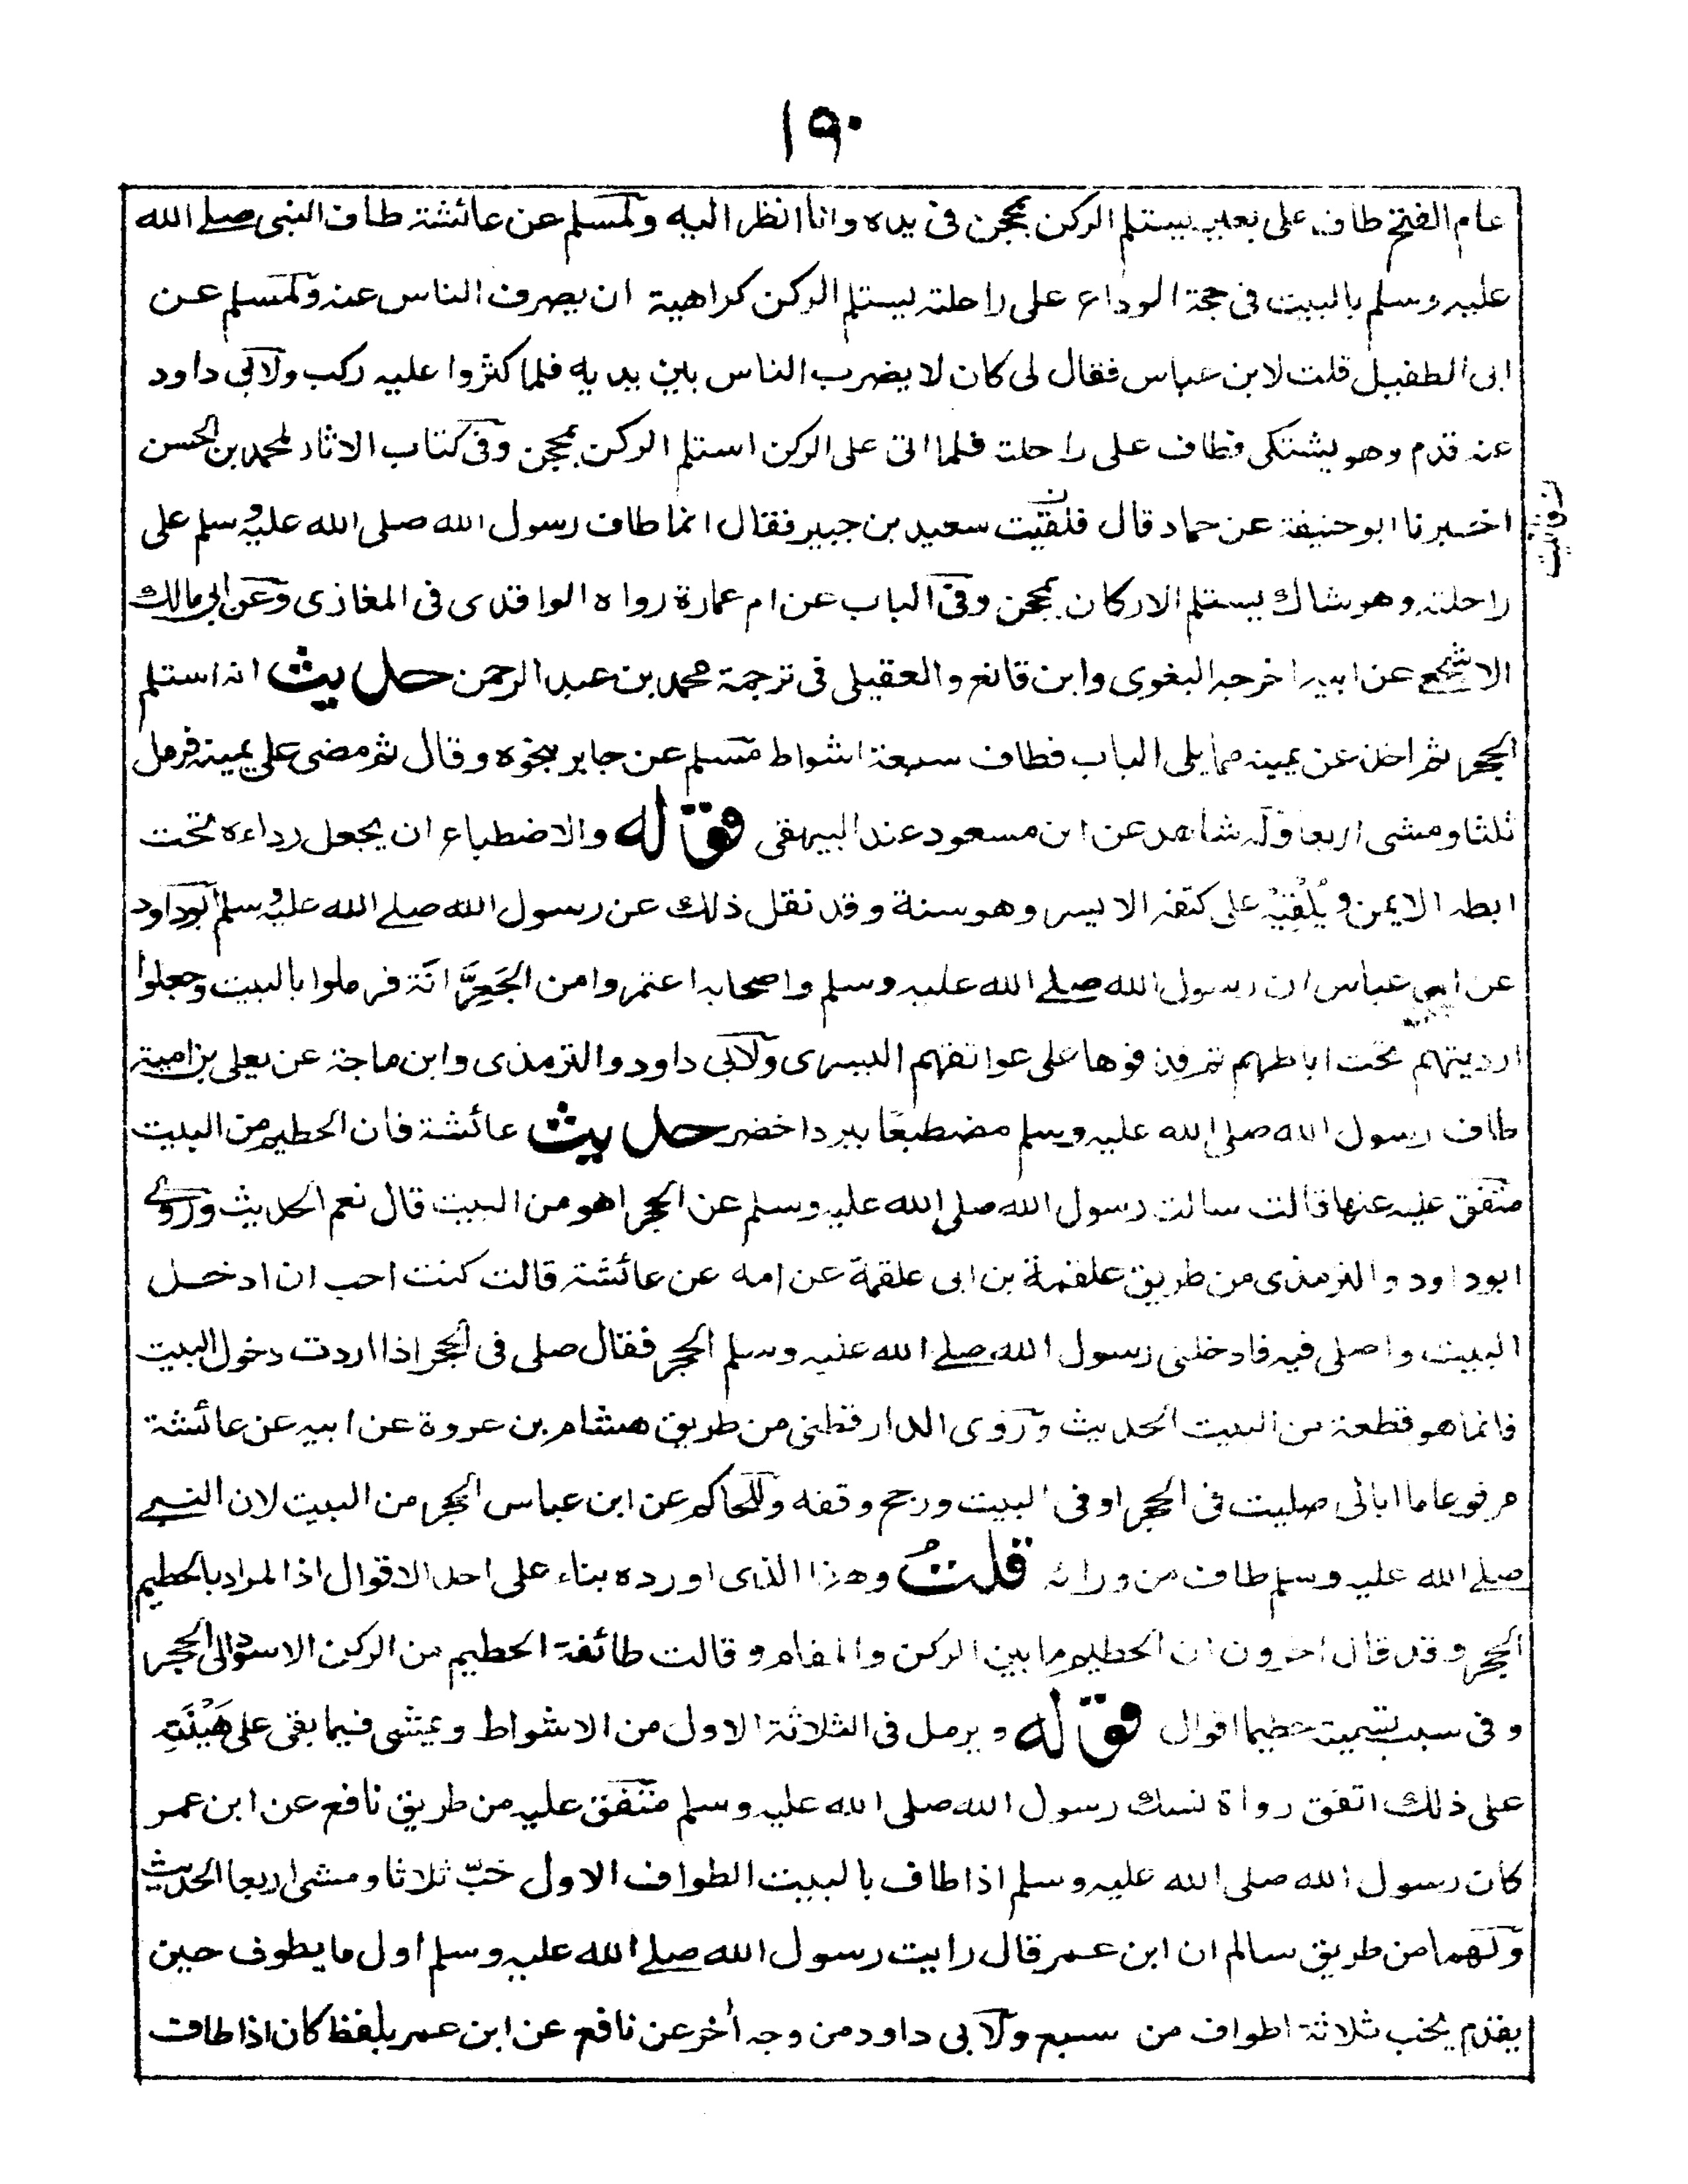 ١٩٠
عام الفتح طاف على بعير يستلم الركن بمحجن فى يده وانا انظر اليه ولمسلم عن عائشة طاف النبى صلے الله
عليه وسلم بالبيت فى حجة الوداع على راحلته يستلم الركن كراهية ان يصرف الناس عنه ولمسلم عن
ابى الطفيل قلت لابن عباس فقال لى كان لا يضرب الناس بين يديه فلما كثروا عليه ركب ولابى داود
عنه قدم وهو يشتكى فطاف على راحلته فلما اتى على الركن استلم الركن بمحجن وفى كتاب الاثار لمحمد بن الحسن
اخبرنا ابو حنيفة عن حماد قال فلقيت سعيد بن جبير فقال انما طاف رسول الله صلى الله عليه وسلم على
راحلته وهو شاك يستلم الاركان بمحجن وفى الباب عن ام عمارة رواه الواقدى فى المغازى وعن ابى مالك
الاشجعى عن ابيه اخرجه البغوى وابن قانع والعقيلى فى ترجمة محمد بن عبد الرحمن حديث انه استلم
الحجر ثم اخذ عن يمينه مما يلى الباب فطاف سبعة اشواط مسلم عن جابر بنحوه وقال ثم مضى على يمينه فرمل
ثلثا ومشى اربعا وله شاهد عن ابن مسعود عند البيهقى قوله والاضطباع ان يجعل رداءه تحت
ابطه الايمن ويلقيه على كتفه الايسر وهو سنة وقد نقل ذلك عن رسول الله صلے الله عليه وسلم ابو داود
عن ابن عباس ان رسول الله صلے الله عليه وسلم واصحابه اعتمروا من الجَعِرَّانَة فرملوا بالبيت وجعلوا
ارديتهم تحت اباطهم ثم قذفوها على عواتقهم اليسرى ولابى داود والترمذى وابن ماجة عن يعلى بن امية
طاف رسول الله صلى الله عليه وسلم مضطبعًا ببرد اخضر حديث عائشة فان الحطيم من البيت
متفق عليه عنها قالت سالت رسول الله صلى الله عليه وسلم عن الحجر اهو من البيت قال نعم الحديث وروے
ابو داود والترمذى من طريق علقمة بن ابى علقمة عن امه عن عائشة قالت كنت احب ان ادخل
البيت واصلى فيه فادخلنى رسول الله صلے الله عليه وسلم الحجر فقال صلى فى الحجر اذا اردت دخول البيت
فانما هو قطعة من البيت الحديث وروى الدارقطنى من طريق هشام بن عروة عن ابيه عن عائشة
مرفوعا ما ابالى صليت فى الحجر او فى البيت ورجح وقفه وللحاكم عن ابن عباس الحجر من البيت لان النبے
صلے الله عليه وسلم طاف من ورائه قلتُ وهذا الذى اورده بناء على احد الاقوال اذ المراد بالحطيم
الحجر وقد قال اخرون ان الحطيم ما بين الركن والمقام وقالت طائفة الحطيم من الركن الاسود الى الحجر
وفى سبب تسميته حطيما اقوال قوله ويرمل فى الثلاثة الاول من الاشواط ويمشى فيما بقى على هَيْنَتِه
على ذلك اتفق رواة نسك رسول الله صلى الله عليه وسلم متفق عليه من طريق نافع عن ابن عمر
كان رسول الله صلى الله عليه وسلم اذا طاف بالبيت الطواف الاول خبّ ثلاثا ومشى اربعا الحديث
ولهما من طريق سالم ان ابن عمر قال رايت رسول الله صلے الله عليه وسلم اول ما يطوف حين
يقدم يخب ثلاثة اطواف من سبع ولابى داود من وجه أخر عن نافع عن ابن عمر بلفظ كان اذا طاف